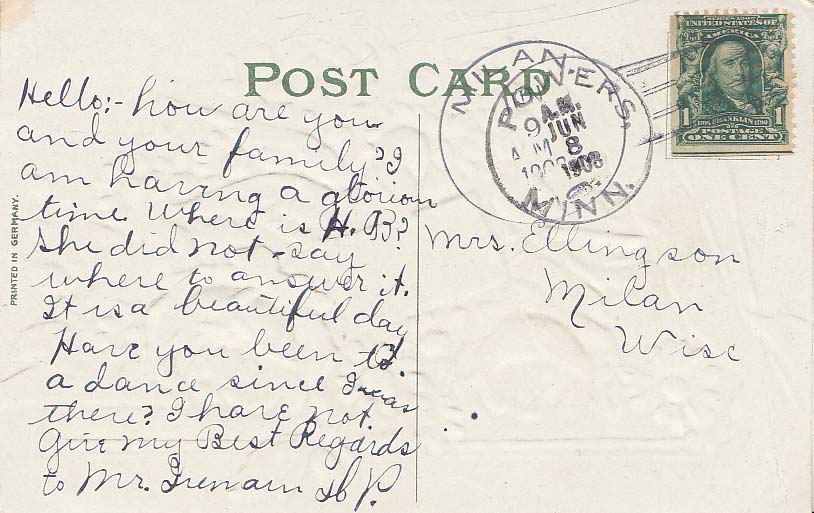 POST CARD
Hello:- how are you
and your family? I
am having a glorious
time. Where is H. B?
She did not say
where to answer it.
It is a beautiful day
Have you been to
a dance since I was
there? I have not.
Give my Best Regards
to Mr.
PRINTED IN GERMANY.
MILAN
POWERS,
9 A.M.
JUN
8
1908
MINN.
SERIES 1902
UNITED STATES OF
AMERICA
1 FRANKLIN 1
POSTAGE
ONE CENT
Mrs. Ellingson
Milan
Wisc